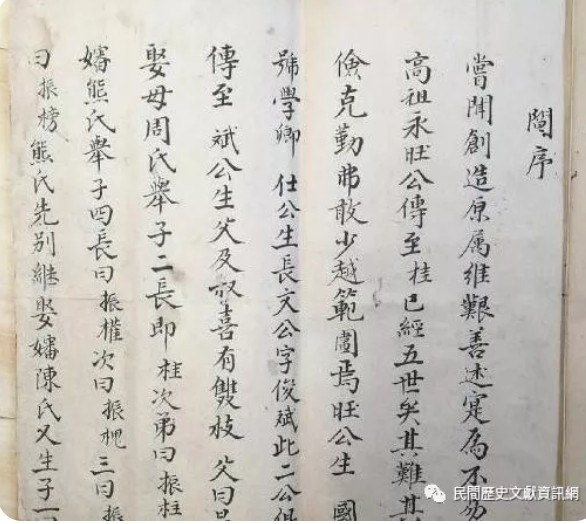 鬮序
嘗聞創造原属維艱善述寔為不易
高祖永旺公傳至桂已經五世矣其難其
儉克勤弗敢少越範圍焉旺公生 國
號學卿 仕公生長文公字俊斌此二公俱
傳至 斌公生父及叔喜有雙枝 父曰
娶母周氏舉子二長即桂次弟曰振柱
嬸熊氏舉子四長曰振權次曰振槐三曰振
曰振榜熊氏先別継娶嬸陳氏又生子一
民間歷史文獻資訊網